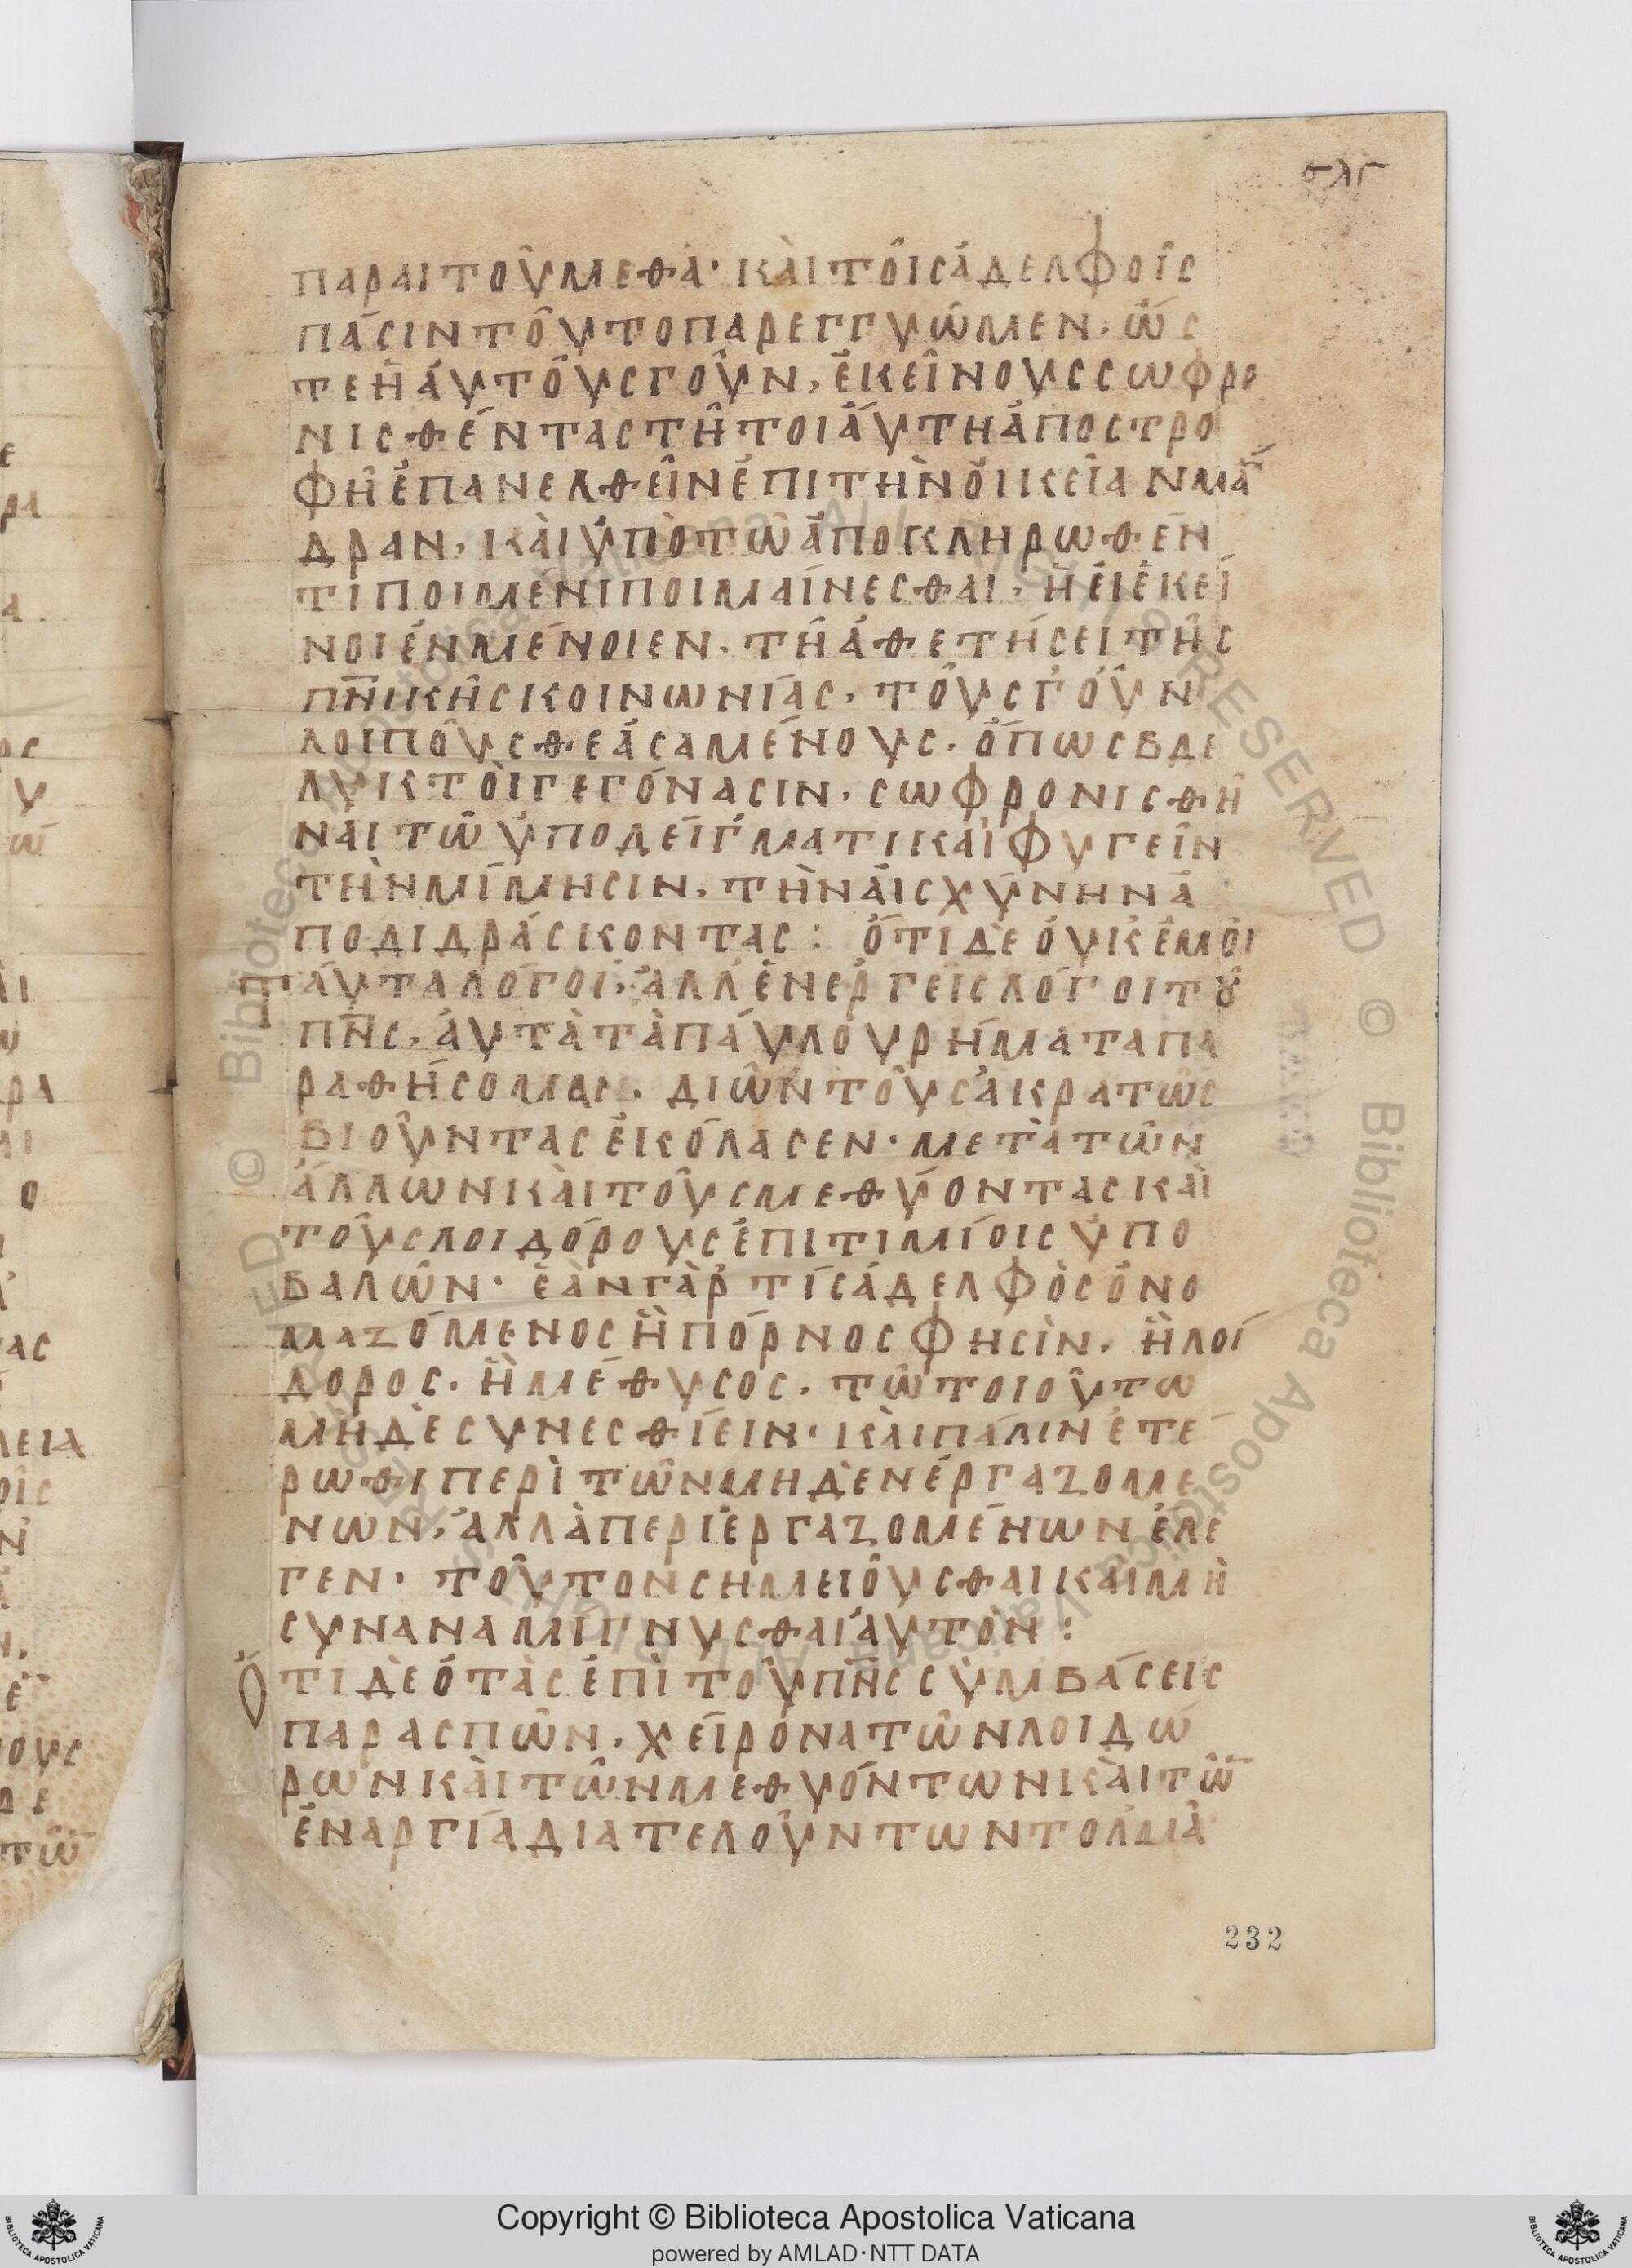 σλς
παραιτοῦμεθα· καὶ τοῖς ἀδελφοῖς
πᾶσιν τοῦτο παρεγγυῶμεν, ὥσ
τε ἢ ἀυτοὺς γοῦν, ἐκείνους σωφρο
νισθέντας τῆ τοιάυτη ἀποστρο
φῆ ἐπανελθεῖν ἐπι τὴν ὀικείαν μᾶ
δραν, καὶ ὑπὸ τῶ ἀποκληρωθέν
τι ποιμένι ποιμαίνεσθαι, ἢ ἐι ἐκεῖ
νοι ἐνμένοιεν, τῆ ἀθετήσει τῆς
πν̅ικῆς κοινωνίας, τοὺς γ' ὀῦν
λοιποὺς θεασαμένους, ὅπως βδε
λυκτὸι γεγόνασιν, σωφρονισθῆ
ναι τῶ ὑποδείγματι καὶ φυγεῖν
τὴν μίμησιν, τὴν ἀισχύνην ἀ
ποδιδράσκοντας: ὅτι δὲ ὀυκ ἐμὸι
ταῦτα λόγοι, ἀλλ' ἐνεργεῖς λόγοι τȣ͂
πν̅ς, ἀυτὰ τὰ πάυλου ρήματα πα
ραθήσομαι, δι ὧν τοὺς ἀκρατῶς
βιοῦντας ἐκόλασεν· μετὰ τῶν
ἄλλων καὶ τοὺς μεθύοντας καὶ
τοὺς λοιδόρους ἐπιτιμίοις ὑπο
βαλὼν· ἐὰν γὰρ τίς ἀδελφὸς ὀνο
μαζόμενος ἢ πόρνος φησὶν, ἢ λοί
δορος, ἢ μέθυσος, τῶ τοιούτω
μηδὲ συνεσθίειν· καὶ πάλιν ἑτέ
ρωθι περὶ τῶν μηδὲν ἐργαζομέ
νων, ἀλλὰ περιεργαζομένων ἔλε
γεν· τοῦτον σημειοῦσθαι καὶ μὴ
συναναμίγνυσθαι ἀυτὸν:
Ὅτι δὲ ὁ τὰς ἐπὶ τοῦ πν̅ς συμβάσεις
παρασπῶν, χείρονα τῶν λοιδώ
ρων καὶ τῶν μεθυόντων καὶ τῶ̅
ἐν ἀργία διατελούντων τολμᾶ
232
Copyright © Biblioteca Apostolica Vaticana
powered by AMLAD·NTT DATA